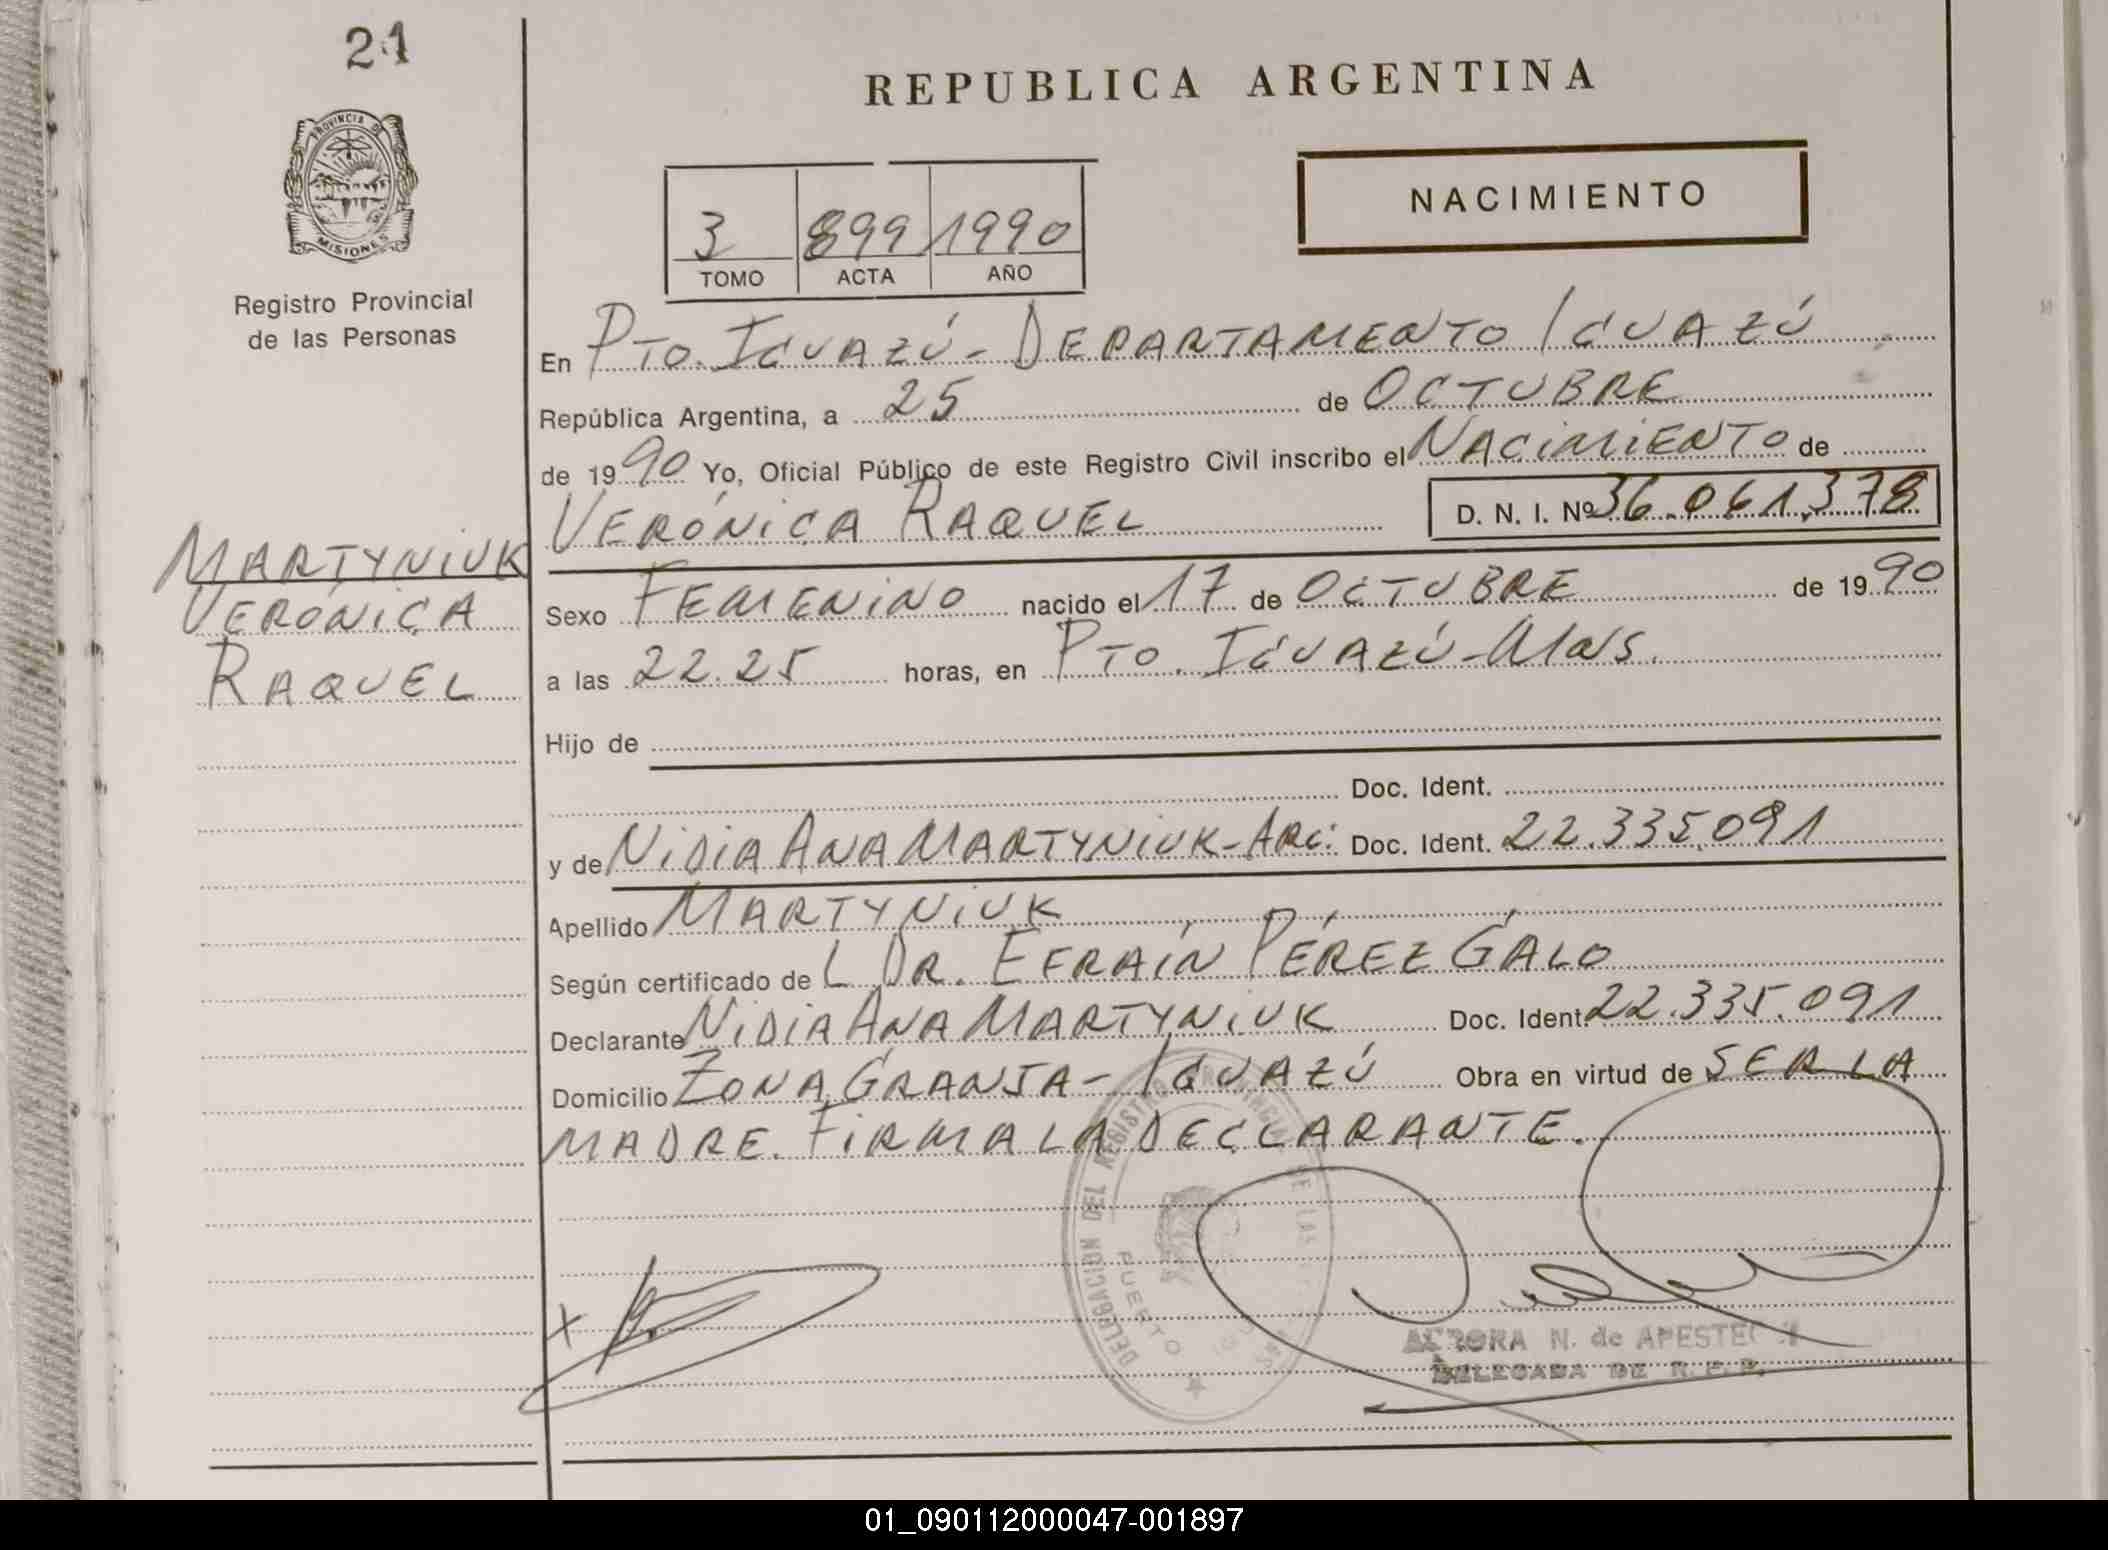 21
REPUBLICA ARGENTINA
PROVINCIA DE
MISIONES
Registro Provincial
de las Personas
NACIMIENTO
3 899 1990
TOMO ACTA AÑO
En PTO. IGUAZÚ - DEPARTAMENTO IGUAZÚ
República Argentina, a 25 de OCTUBRE
de 1990 Yo, Oficial Público de este Registro Civil inscribo el NACIMIENTO de
VERÓNICA RAQUEL D. N. I. Nº 36.061.378
MARTYNIUK
VERÓNICA
RAQUEL
Sexo FEMENINO nacido el 17 de OCTUBRE de 1990
a las 22.25 horas, en PTO. IGUAZÚ - MNS.
Hijo de
Doc. Ident.
y de NIDIA ANA MARTYNIUK - ARG: Doc. Ident. 22.335.091
Apellido MARTYNIUK
Según certificado de L DR. EFRAÍN PÉREZ GALO
Declarante NIDIA ANA MARTYNIUK Doc. Ident. 22.335.091
Domicilio ZONA GRANJA - IGUAZÚ Obra en virtud de SER LA
MADRE. FIRMA LA DECLARANTE.
DELEGACION DEL REGISTRO PROVINCIAL DE LAS
PUERTO
X
AURORA N. de
DELEGADA DE R. P. P.
01_090112000047-001897